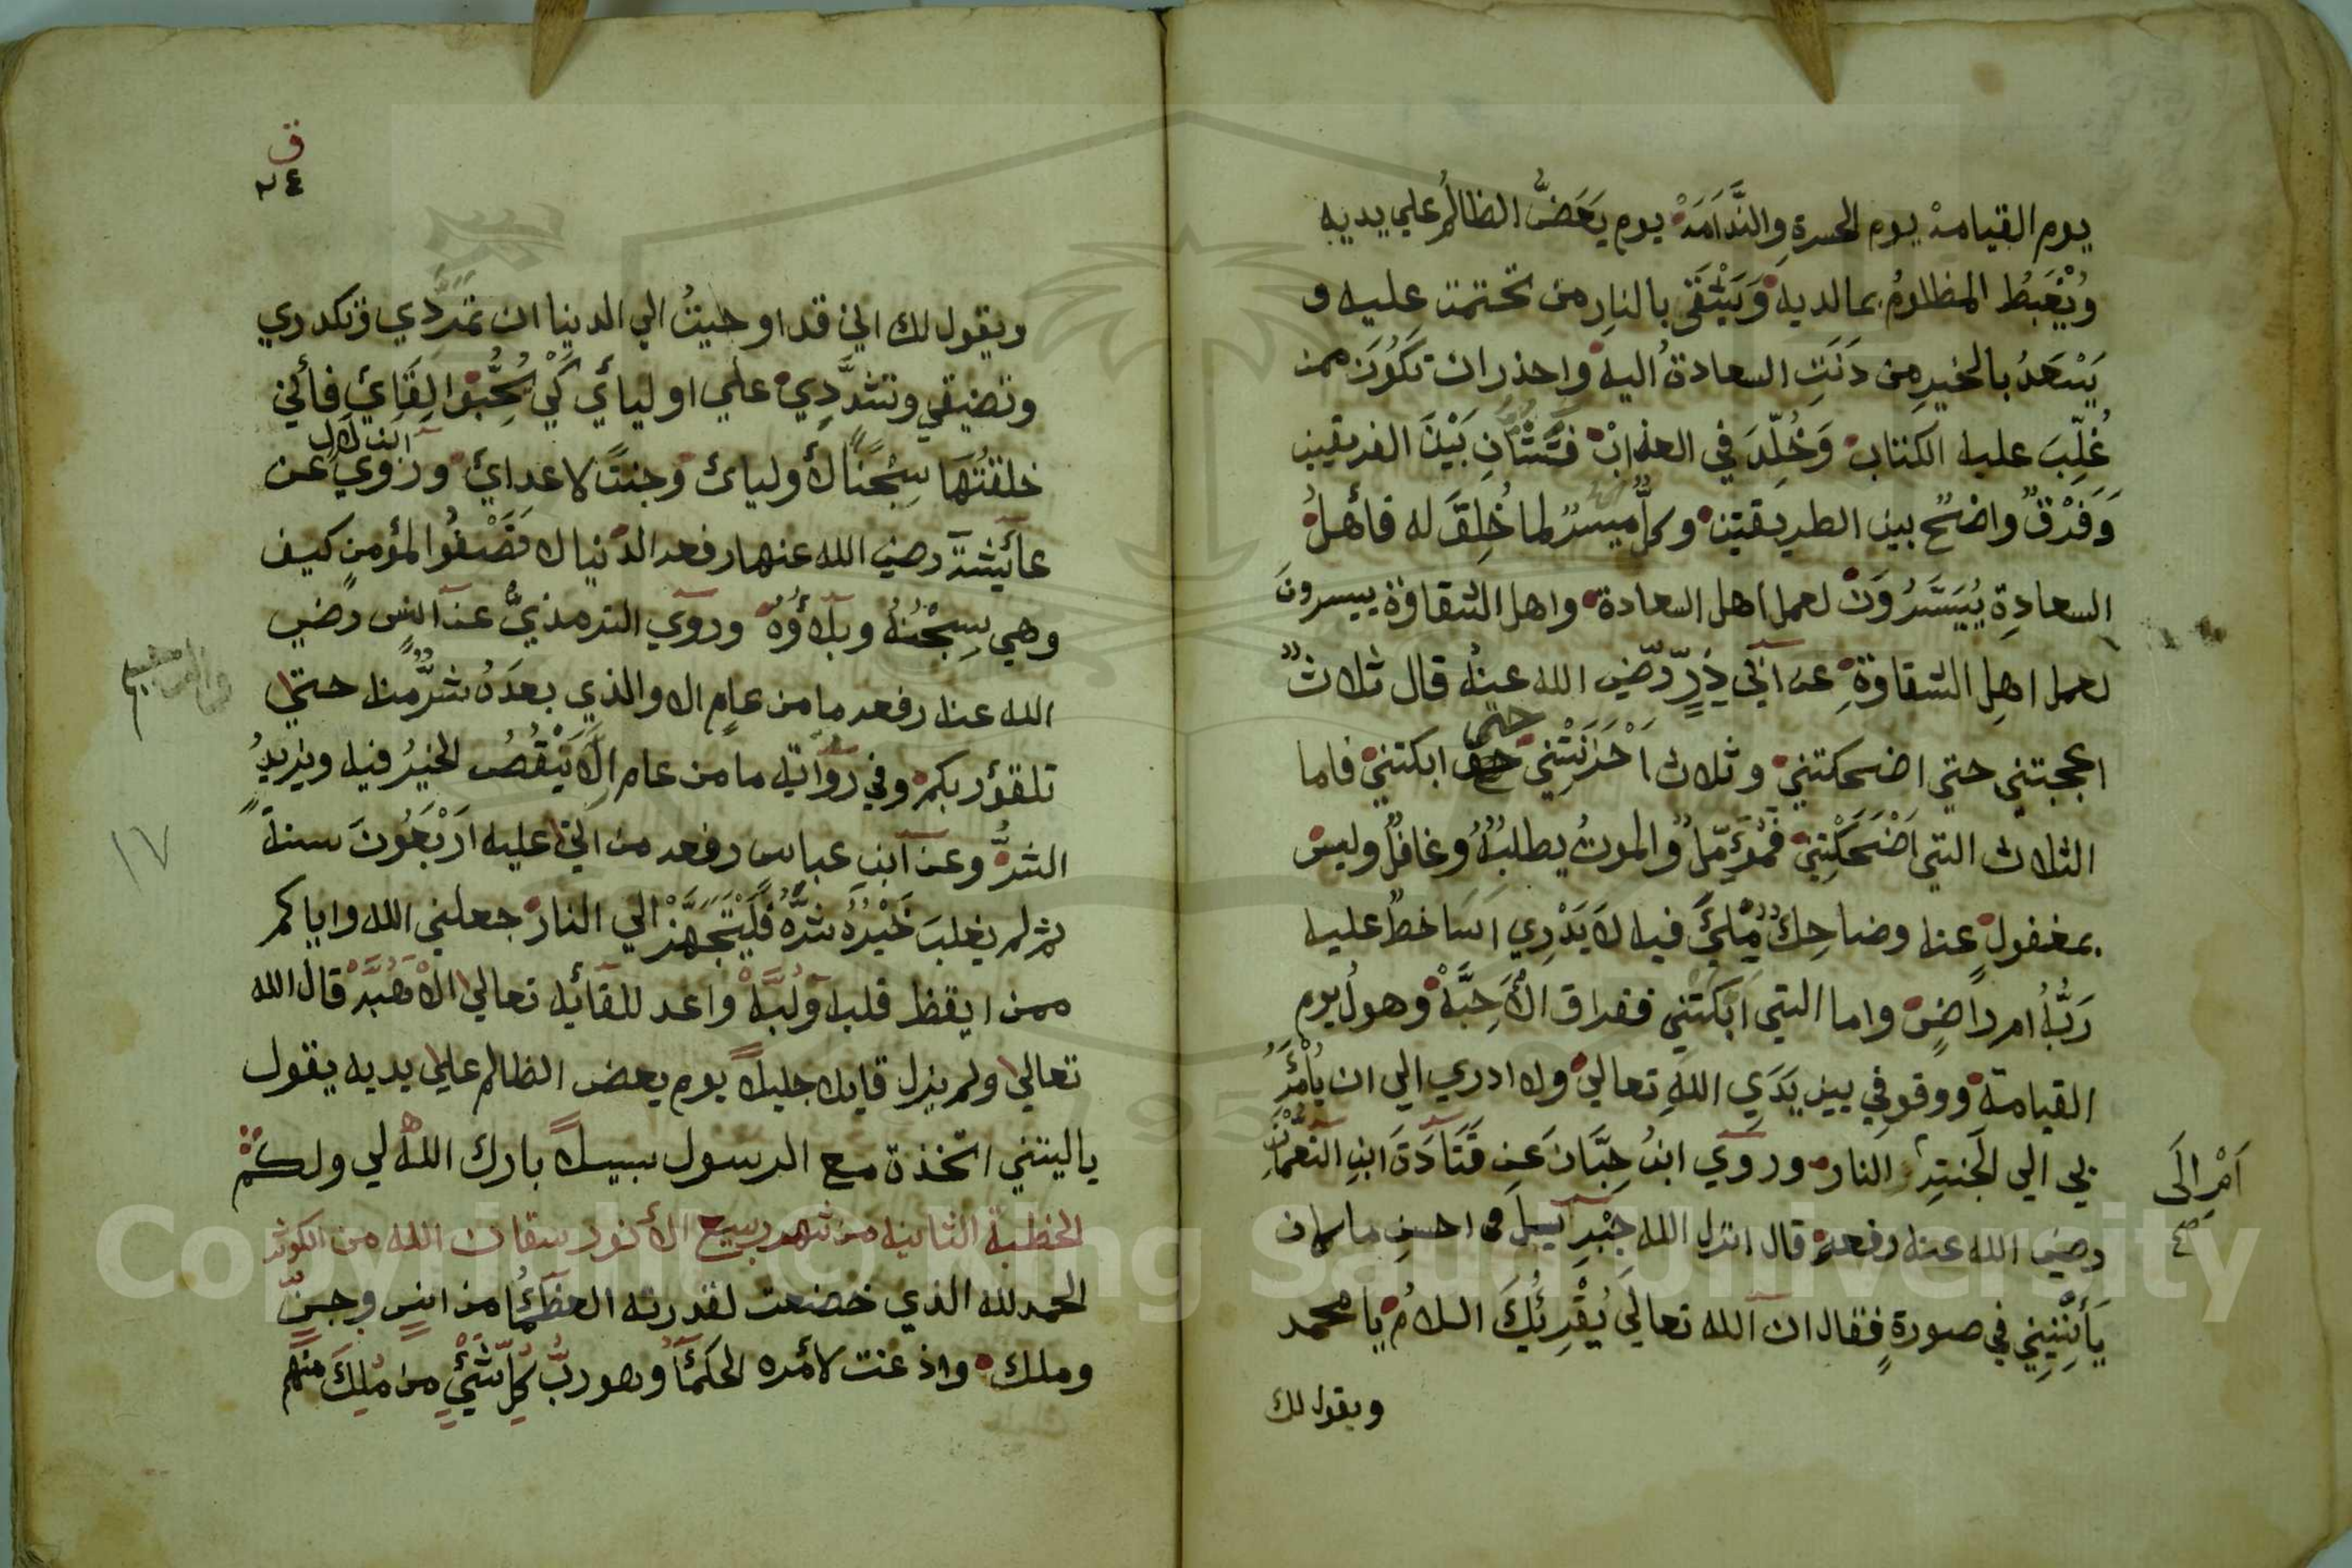 يوم القيامة يوم الحسرةِ والنَّدَامَةْ يوم يَعَضُّ الظالمُ علي يديه
ويُغْبَطُ المظلومُ بمالديه وَيَشْقَى بالنارِ من تحتمت عليه و
يَسْعَدُ بالخيرِ من دَنَتِ السعادةُ اليه واحذر ان تكُونَ ممن
غُلِّبَ عليه الكتاب وَخُلِّدَ في العذابْ فَشَتَّانِ بَيْنَ الفريقين
وَفَرْقٌ واضحٌ بين الطريقتين وكلٌّ ميسرٌ لما خُلِقَ له فأهلُ
السعادةِ يُيَسَّرُونْ لعمل اهل السعادة واهل الشقاوة ييسرونَ
لعمل اهلِ الشقاوةِ عن أبي ذَرٍّ رضي الله عنهُ قال ثلاثٌ
اعجبتني حتي اضحكتني وثلاث اَحْزَنَتْنِي حتى ابكتني فاما
الثلاث التي اَضْحَكْتِني فَمُؤَمِّلٌ والموتُ يطلبُهُ وغافلٌ وليس
بمغفولٍ عنه وضاحِكٌ مِلْئَ فيه لاَيَدْرِي اَسَاخطٌ عليه
رَبُّهُ ام راضٍ واما التي اَبْكَتْنِي ففراق الأَحِبَّةْ وهولُ يوم
القيامة ووقوفي بين يَدَيِ اللهِ تعالي ولا ادري الي ان يُأمَرُ
بي الي الجنةِ اَمْ اِلَى النار وروَي ابنُ حِبَّانَ عَنِ قَتَادَةَ ابنِ النُعْمَانِ
رضي الله عنه رفعه قال انزل الله جِبْرآئيلَ في احسنِ ماكان
يَأتِينِي في صورةٍ فقال ان الله تعالَي يُقْرِئُكَ السلامُ يا محمد
ويقول لك
ق
٢٤
ويقول لك اني قد اوحيتُ الي الدنيا ان تَمَرَّدِي وتكدري
وتضيقي وتشدَّدِي علي اوليائي كَيْ يُحِبُّوا لِقَائي فأني
خلقتُهَا سِجْناً لأوليائ وجنتً لاعدائ وروي ابن لال عن
عآئشة رضي الله عنها رفعه الدنيا لا تَصْفُوا لمؤمنٍ كيف
وهي سِجْنُهُ وبلاؤُهُ وروَي الترمذيُّ عن انس رضي
الله عنه رفعه ما من عامٍ الا والذي بعدَهُ شرٌّ منه حتي
تلقؤ ربكم وفي رواية ما من عام اِلاَّ يَنْقُصُ الخيرُ فيه ويزيدُ
الشرُّ وعن ابن عباس رفعه من اتي عليه اَرْبَعُونَ سنةً
ثم لم يغلبَ خَيْرُهُ شرَّهُ فَلْيَتَجَهَّزْ الي النار جعلني الله واياكم
ممن ايقظ قلبه ولُبَّهْ واعد للقائه تعالي قال الله
تعالي ولم يزل قايلا جليلاً يوم يعض الظالم علي يديه يقول
ياليتني اتخذة مع الرسول سبيلاً بارك الله لي ولكم
الخطبة الثانيه من شهر ربيع الأنور سقان الله من الكوثر
الحمد لله الذي خضعت لقدرته العظمَا من انسٍ وجنٍّ
وملك واذعنت لأمره الحكمَآ وهو ربُّ كلِّ شَيْئٍ من مُلِكَ منهم
١٧
Copyright © King Saud University